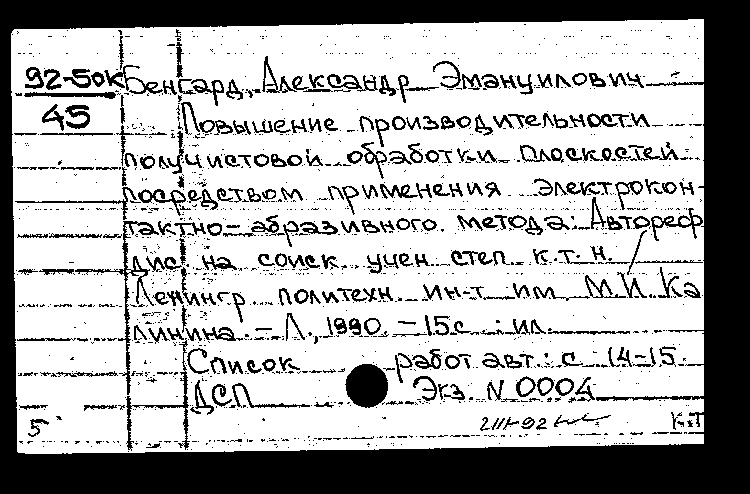 92-50к Бенгард, Александр Эмануилович
45
Повышение производительности
получистовой обработки плоскостей
посредством применения электрокон-
тактно-абразивного метода: Автореф
дис. на соиск учен степ к.т.н. /
Ленингр. политехн. ин-т им М.И. Ка
линина. - Л., 1990. - 15с : ил.
Список работ авт.: с 14-15.
ДСП Экз. N 0004
5 К.Т